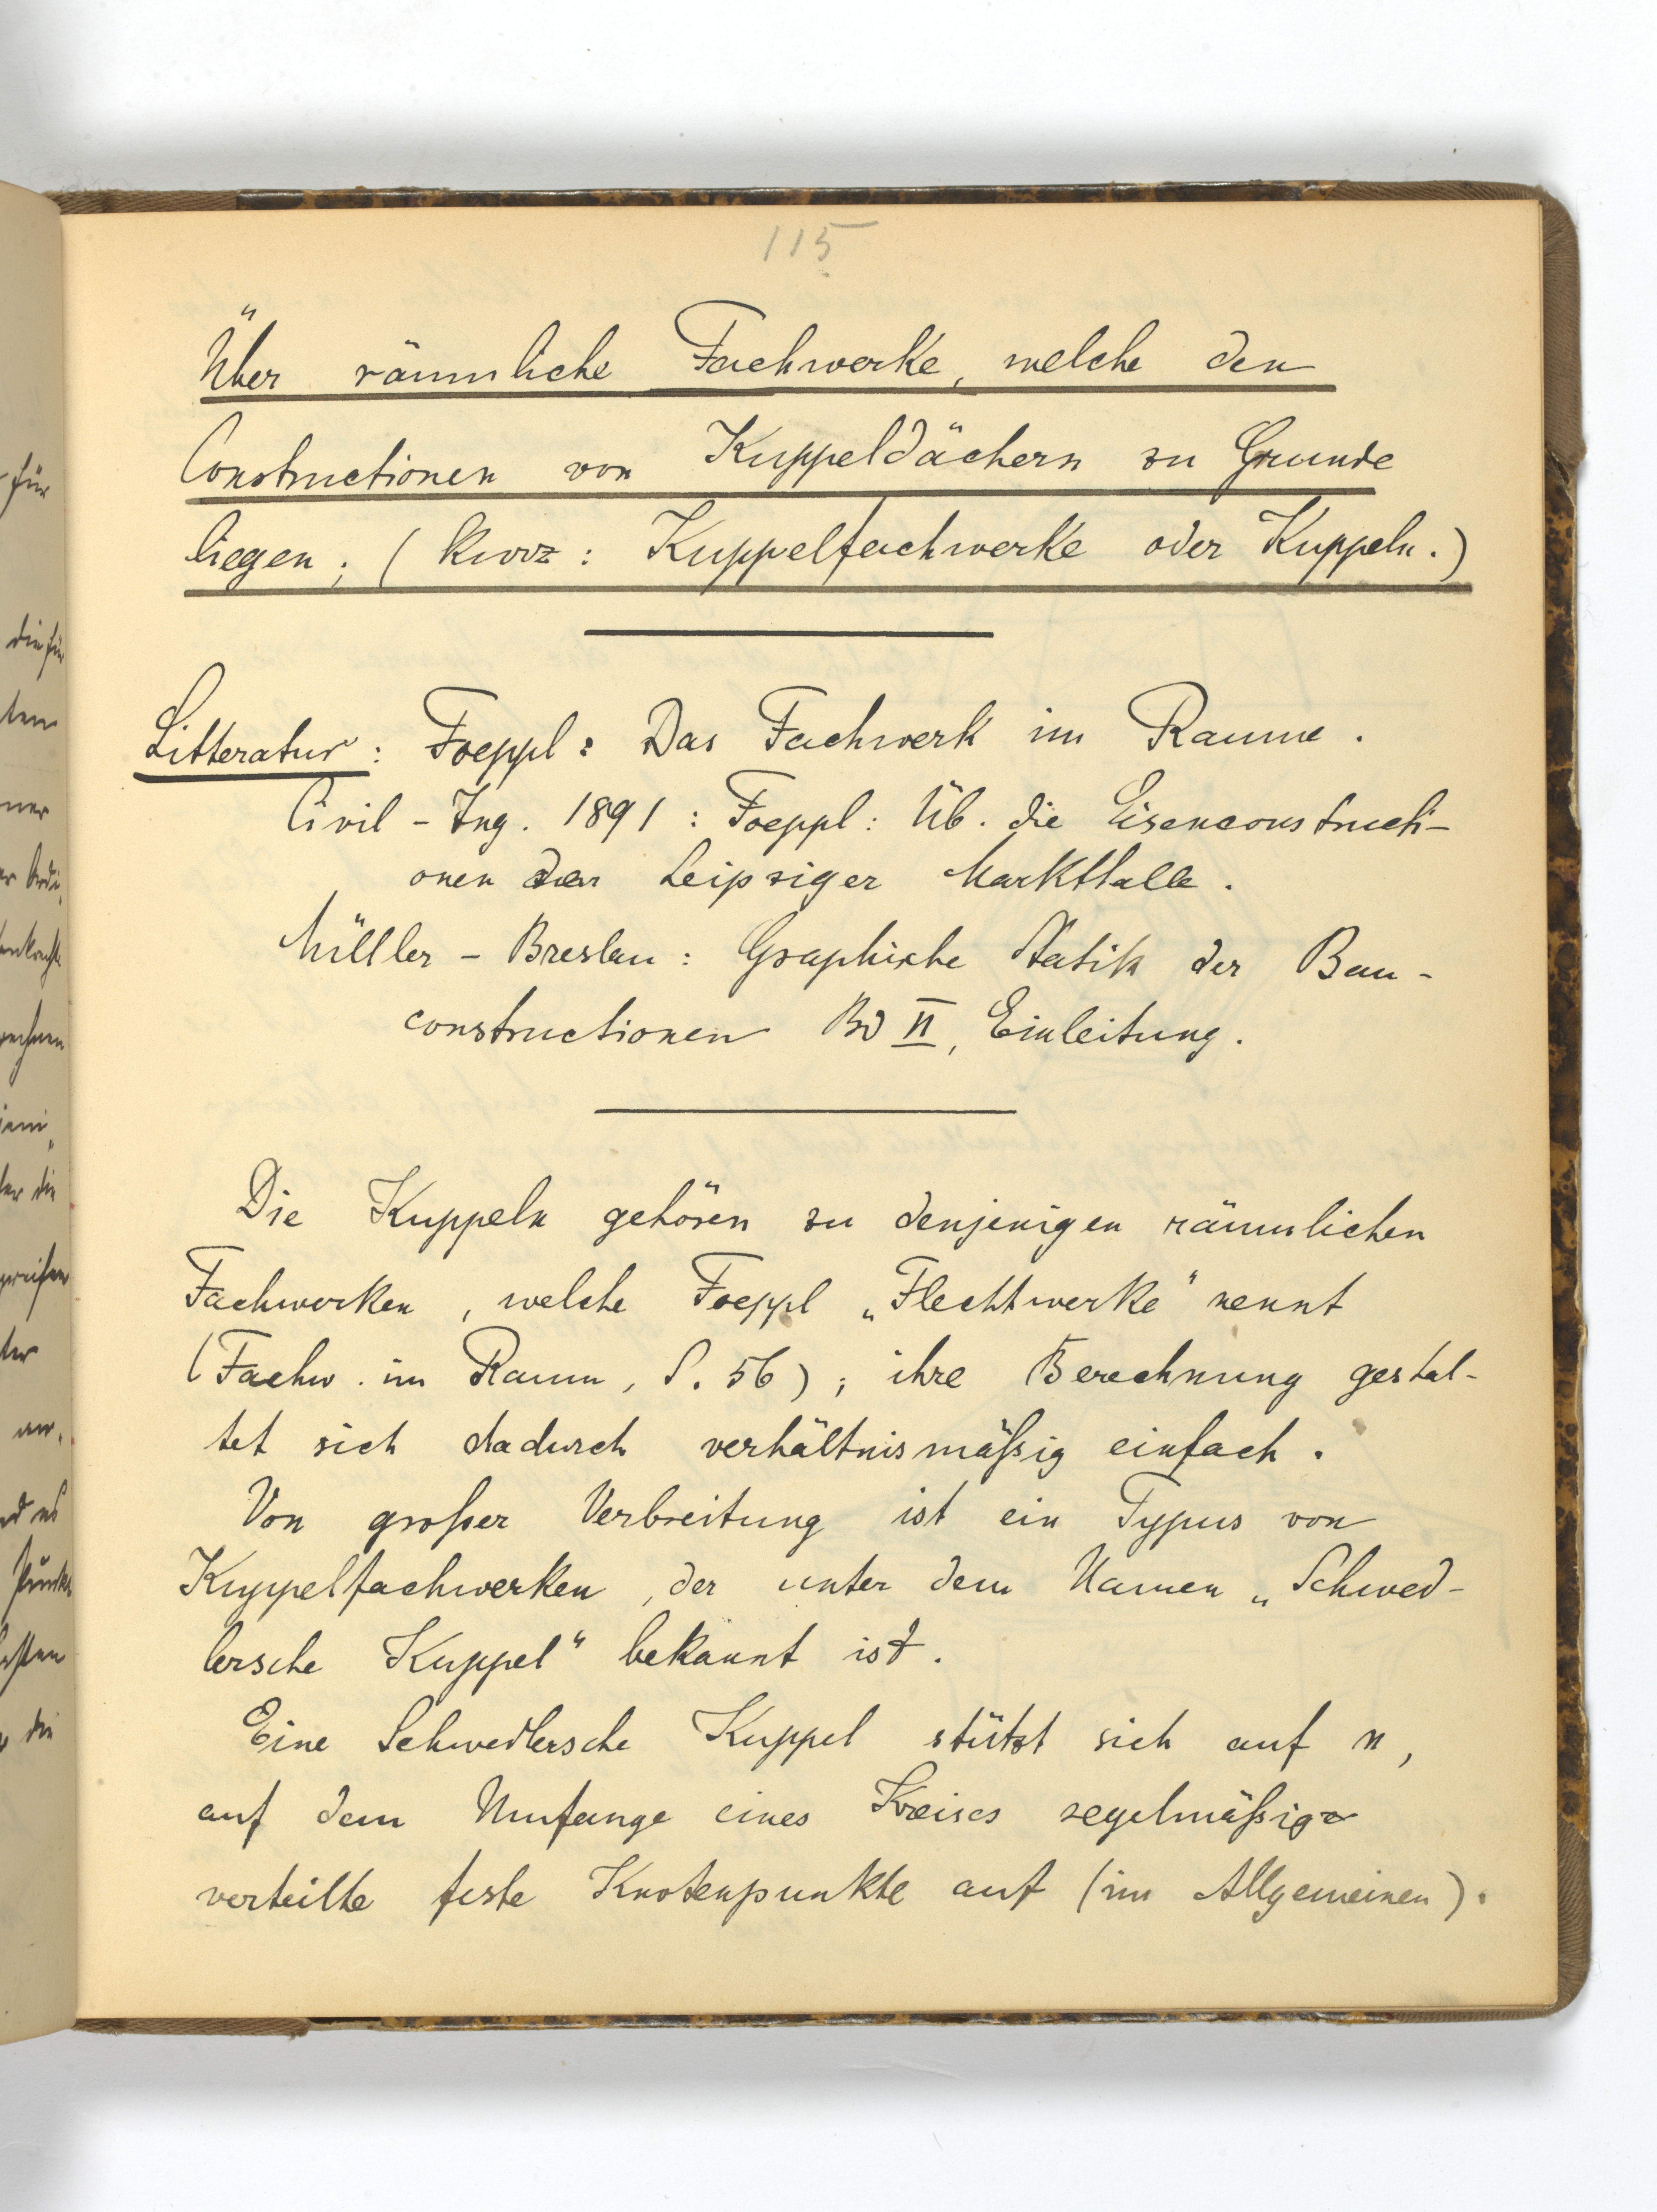 115
Über räumliche Fachwerke, welche den
Constructionen von Kuppeldächern zu Grunde
liegen; (kurz: Kuppelfachwerke oder Kuppeln.)
Litteratur: Foeppl: Das Fachwerk im Raume.
Civil-Ing. 1891: Foeppl: Üb. die Eisenconstructi-
onen der Leipziger Markthalle.
Müller-Breslau: Graphische Statik der Bau-
constructionen Bd II, Einleitung.
Die Kuppeln gehören zu denjenigen räumlichen
Fachwerken, welche Foeppl „Flechtwerke“ nennt
(Fachw. im Raum, S. 56); ihre Berechnung gestal-
tet sich dadurch verhältnismäßig einfach.
Von großer Verbreitung ist ein Typus von
Kuppelfachwerken, der unter dem Namen „Schwed-
lersche Kuppel“ bekannt ist.
Eine Schwedlersche Kuppel stützt sich auf n,
auf dem Umfange eines Kreises regelmäßig
verteilte feste Knotenpunkte auf (im Allgemeinen).
für
die für
ten
ner
ler die
ter
die